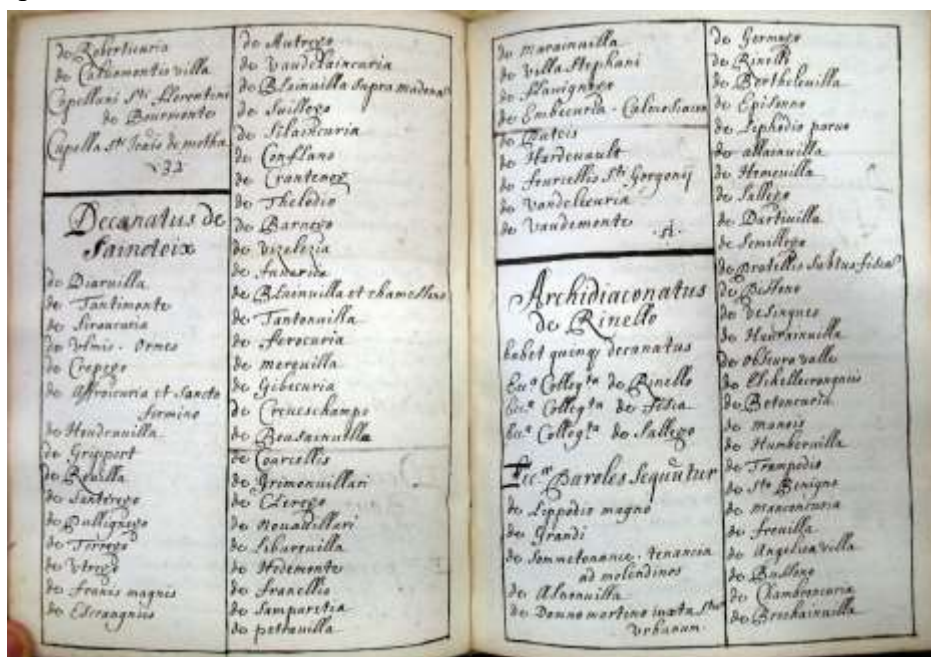 de Roberticuria
de Calvomontis villa
Capellani Sti Florentini
de Bourmonte
Capella Sti de motha
32
Decanatus de
Sainctois
de Diaruilla
de Tantimonte
de Siroucuria
de Vlmis - Ormes
de Crepego
de Affroicuria et Sancto
firmino
de Houdrauilla
de Gripport
de Reuilla
de Xanterego
de Pulligneyo
de Torreyo
de Vtrego
de franis magnis
de Escrangnis
de Autrego
de Vaudelaincuria
de Blainuilla supra madona
de Suillego
de Silaincuria
de Conflans
de Cranteno
de Thelodio
de Barnego
de Vizelezia
de
de Blainuilla et
de Tantonuilla
de ferocuria
de merouilla
de Gibecuria
de Creueschamps
de Bousainuilla
de Coarcellis
de Grimonuillari
de Clerego
de Nouauillari
de Libareuilla
de Hedemonte
de franellis
de Samparetia
de petrauilla
de marainuilla
de Villa Stephani
de flauignego
de Embecuria -
de Puteis
de Hardeuault
de fourcellis Sti Gorgonij
de Vandelicuria
de Vaudemonte
Archidiaconatus
de Rinello
habet quinq decanatus
Ecca Collegta de Rinello
Ecca Collegta de fisca
Ecca Collegta de Sallego
Ecc Paroles Sequutur
de Leppodio magno
de Grandi
de Sommetonance. tenancia
ad molendinos
de Alonuilla
de Donno martino iuxta Stum
Vrbanum.
de Germayo
de Rinello
de Bertheleuilla
de Episonno
de Lephodio paruo
de allainuilla
de Hemeuilla
de Sallego
de Dartiuilla
de Semillego
de pratellis subtus fisca
de Beffono
de Vesingnes
de Hudrainuilla
de Obscura valle
de
de Betoncuria
de manois
de Humberuilla
de Trampodio
de Sto Benigno
de manconcuria
de freuilla
de Angelica villa
de Bussono
de Chambroncuria
de Brechainuilla